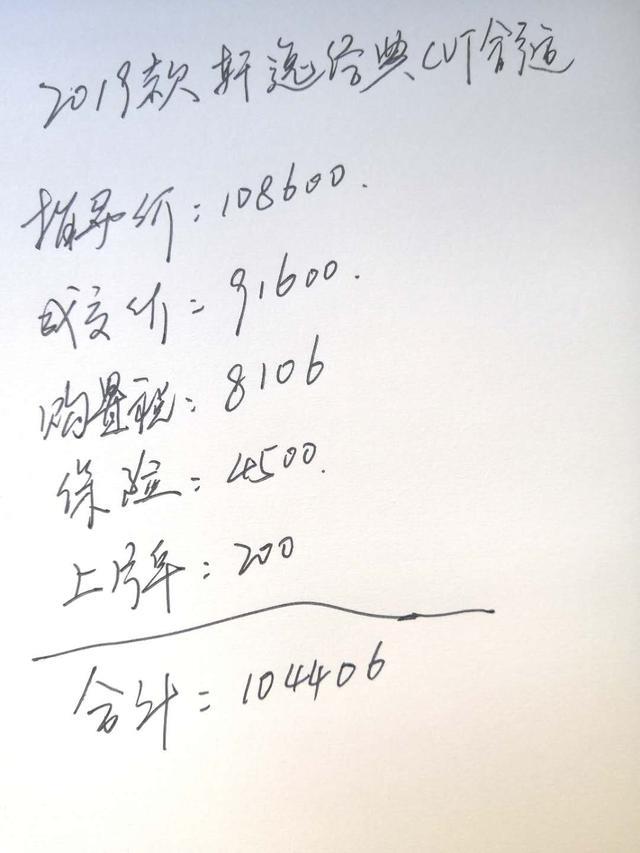 2019款 轩逸经典CVT舒适
指导价：108600.
成交价：91600.
购置税：8106
保险：4500.
上牌车：200
合计：104406